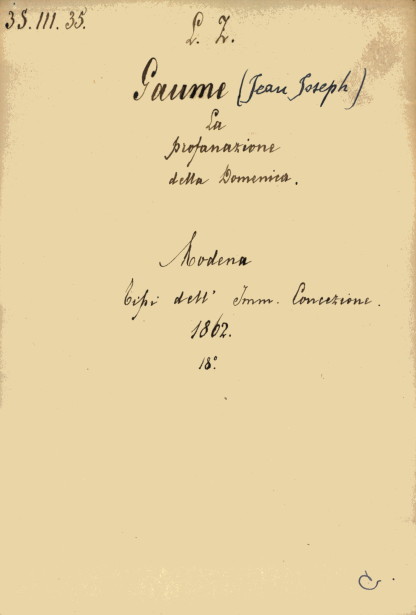 35.III.35.
L. Z.
Gaume (Jean Joseph)
La
profanazione
della Domenica.
Modena
Tipi dell' Imm. Concezione.
1862.
18°